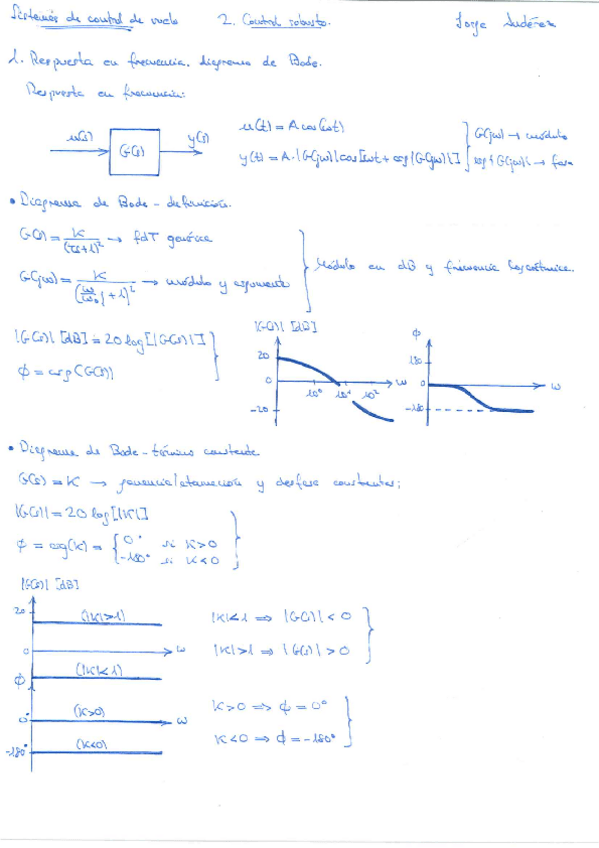 Sistemas de control de vuelo 2. Control robusto. Jorge
1. Respuesta en frecuencia. diagrama de Bode.
Respuesta en frecuencia:
u(s) G(s) y(s)
u(t) = A cos(ωt)
y(t) = A·|G(jω)| cos[ωt + arg{G(jω)}]
G(jω) → módulo
arg{G(jω)} → fase
• Diagrama de Bode - definición.
G(s) = K/(τs+1)² → fdT genérica
G(jω) = K/(ω/ω₀ j + 1)² → módulo y argumento
Módulo en dB y frecuencia logarítmica.
|G(s)| [dB] = 20 log[|G(s)|]
φ = arg(G(s))
|G(s)| [dB]
20
0
-20
10⁰ 10¹ 10² ω
φ
180
0
-180
ω
• Diagrama de Bode - término constante
G(s) = K → ganancia/atenuación y desfase constantes;
|G(s)| = 20 log[|K|]
φ = arg(K) = { 0° si K>0
-180° si K<0
|G(s)| [dB]
20 (|K|>1)
0 ω
(|K|<1)
|K|<1 ⟹ |G(s)| < 0
|K|>1 ⟹ |G(s)| > 0
φ
0° (K>0) ω
-180° (K<0)
K>0 ⟹ φ = 0°
K<0 ⟹ φ = -180°